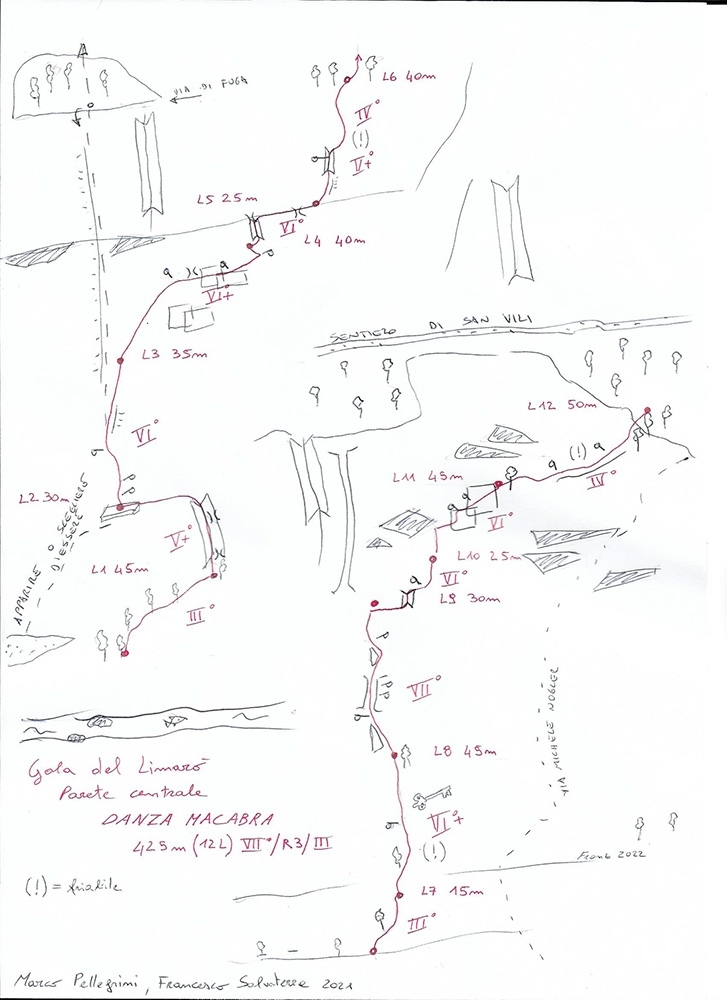 VIA DI FUGA
L6 40m
IV°
(!)
V+°
L5 25m
VI°
L4 40m
VI+°
L3 35m
VI°
L2 30m
V+°
L1 45m
III°
APPARIRE O SCEGLIERE
DI ESSERE
SENTIERO DI SAN VILI
L12 50m
(!)
IV°
L11 45m
VI°
L10 25m
VI°
L9 30m
VII°
L8 45m
VI+°
(!)
L7 15m
III°
VIA MICHELE NOGLER
Frana 2022
Gola del Limarò
Parete centrale
DANZA MACABRA
425m (12L) VII°/R3/III
(!) = friabile
Marco Pellegrini, Francesco Salvaterra 2021